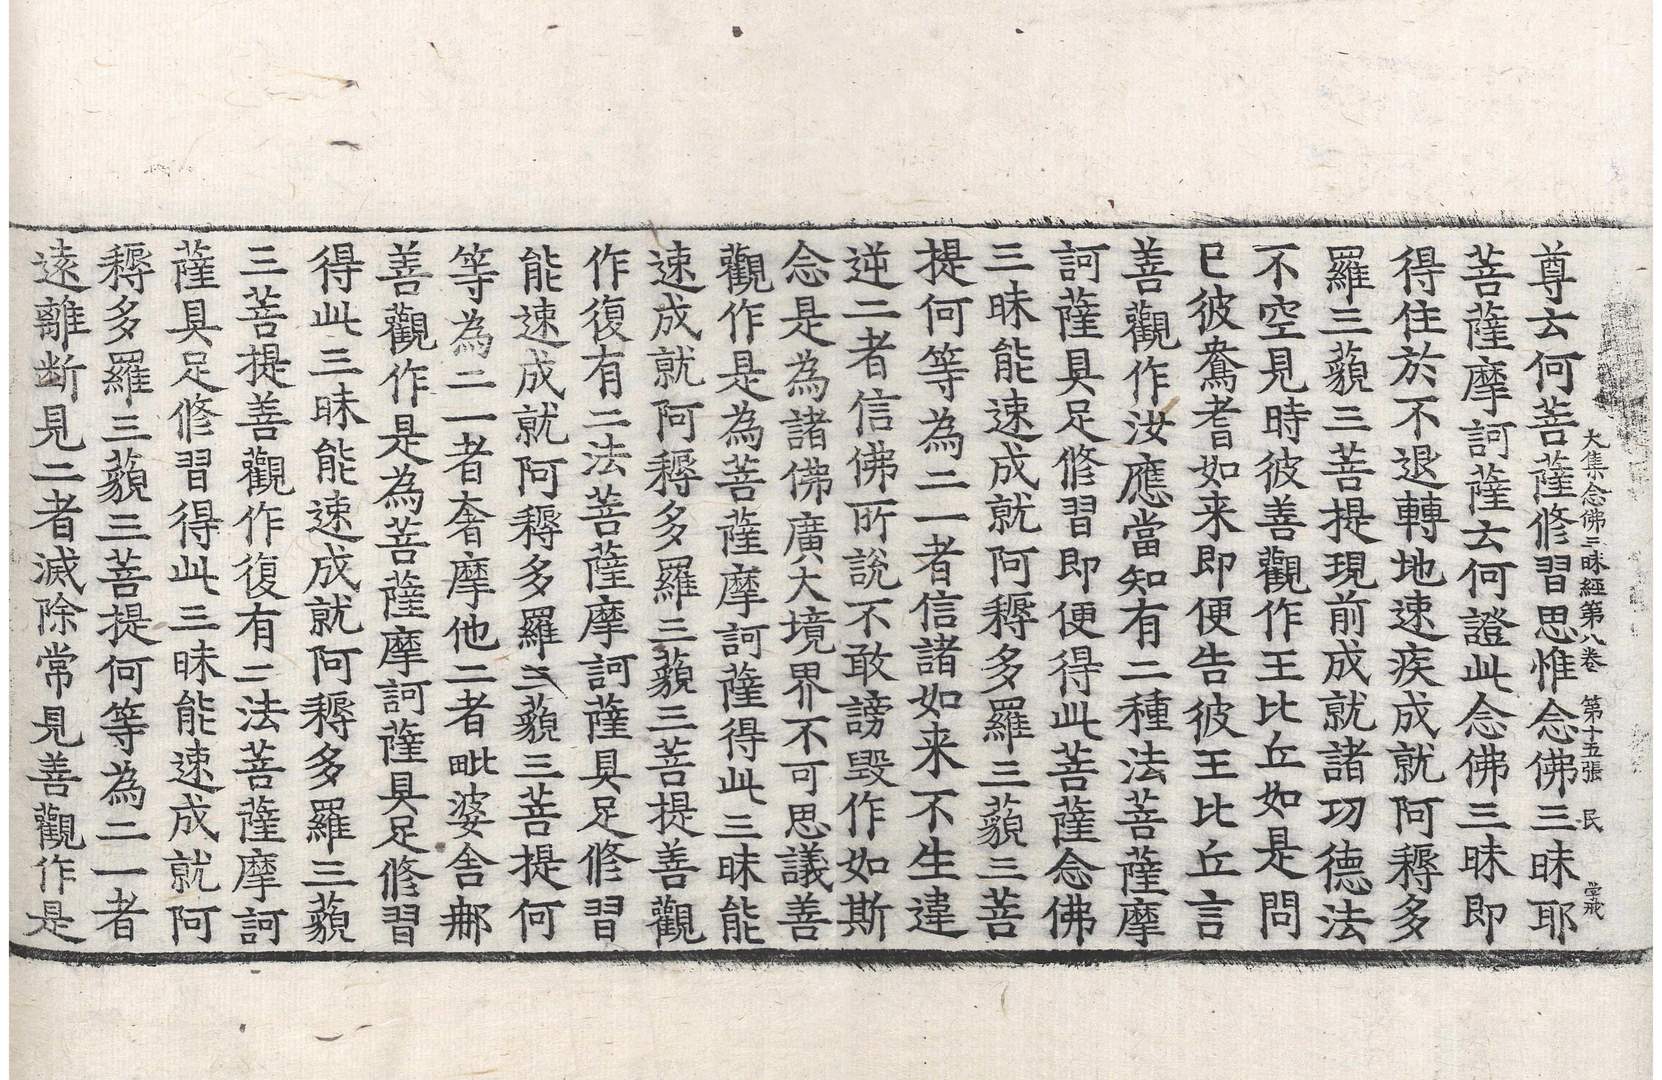 大集念佛三昧經第八卷　第十五張　民　堂戒
尊云何菩薩修習思惟念佛三昧耶
菩薩摩訶薩云何證此念佛三昧即
得住於不退轉地速疾成就阿耨多
羅三藐三菩提現前成就諸功德法
不空見時彼善觀作王比丘如是問
已彼鴦耆如来即便告彼王比丘言
善觀作汝應當知有二種法菩薩摩
訶薩具足修習即便得此菩薩念佛
三昧能速成就阿耨多羅三藐三菩
提何等為二一者信諸如来不生違
逆二者信佛所說不敢謗毀作如斯
念是為諸佛廣大境界不可思議善
觀作是為菩薩摩訶薩得此三昧能
速成就阿耨多羅三藐三菩提善觀
作復有二法菩薩摩訶薩具足修習
能速成就阿耨多羅三藐三菩提何
等為二一者奢摩他二者毗婆舍那
善觀作是為菩薩摩訶薩具足修習
得此三昧能速成就阿耨多羅三藐
三菩提善觀作復有二法菩薩摩訶
薩具足修習得此三昧能速成就阿
耨多羅三藐三菩提何等為二一者
遠離断見二者滅除常見善觀作是